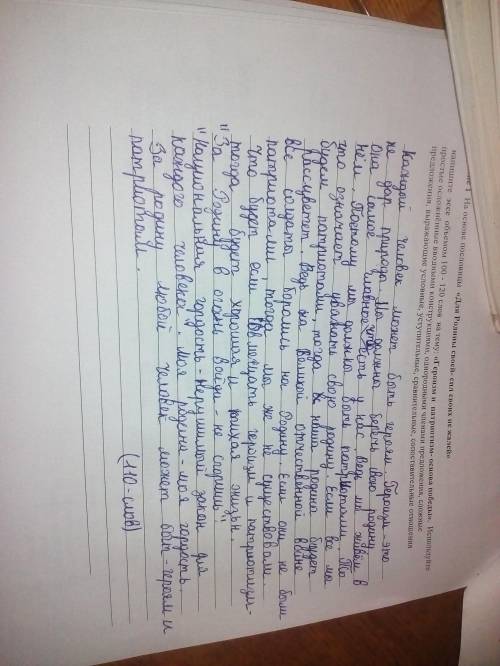 ие 1 На основе пословицы «Для Родины своей- сил своих не жалей»
напишите эссе объемом 100 - 120 слов на тему: «Героизм и патриотизм- основа победы». Используйте
простые осложнённые вводными конструкциями, однородными членами предложения, сложные
предложения, выражающие условные, уступительные, сравнительные, сопоставительные отношения
Каждый человек может быть героям. Героизм - это
не дар природа. Мы должны беречь свою родину
Она самое главное что есть у нас ведь мы живём в
нём. Поэтому мы должны быть патриотами. То
что означает уважать свою родину. Если все мы
будем патриотами, тогда и наша родина будет
рассцветет. Ведь на Великой отечественной войне
все солдаты боролись на Родину. Если они не были
патриотами тогда мы же не существовали.
Что будет если воплощать героизм и патриотизм-
тогда будет хорошая и тихая жизнь.
"За Родину в огонь войди - не сгоришь"
"Национальная гордость - нерушимый закон для
каждого человека. Моя родина - моя гордость.
За родину любой человек может быт - героям и
патриотам.
(110-слов)